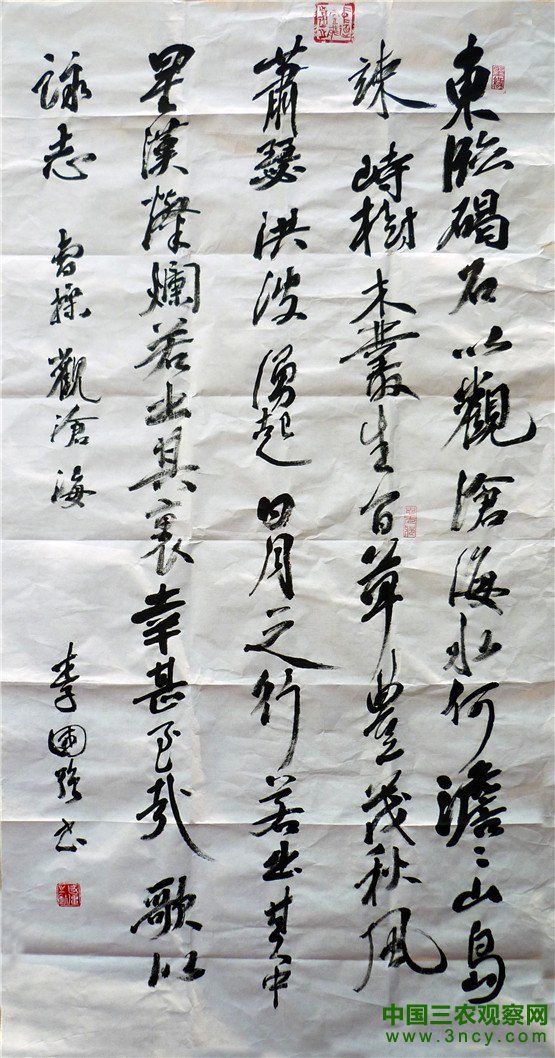 東臨碣石以觀滄海水何澹〻山島
竦峙樹木叢生百草豊茂秋風
蕭瑟洪波湧起日月之行若出其中
星漢燦爛若出其裏幸甚至哉歌以
詠志 曹操觀滄海 李國強书
中国三农观察网
www.3ncy.com